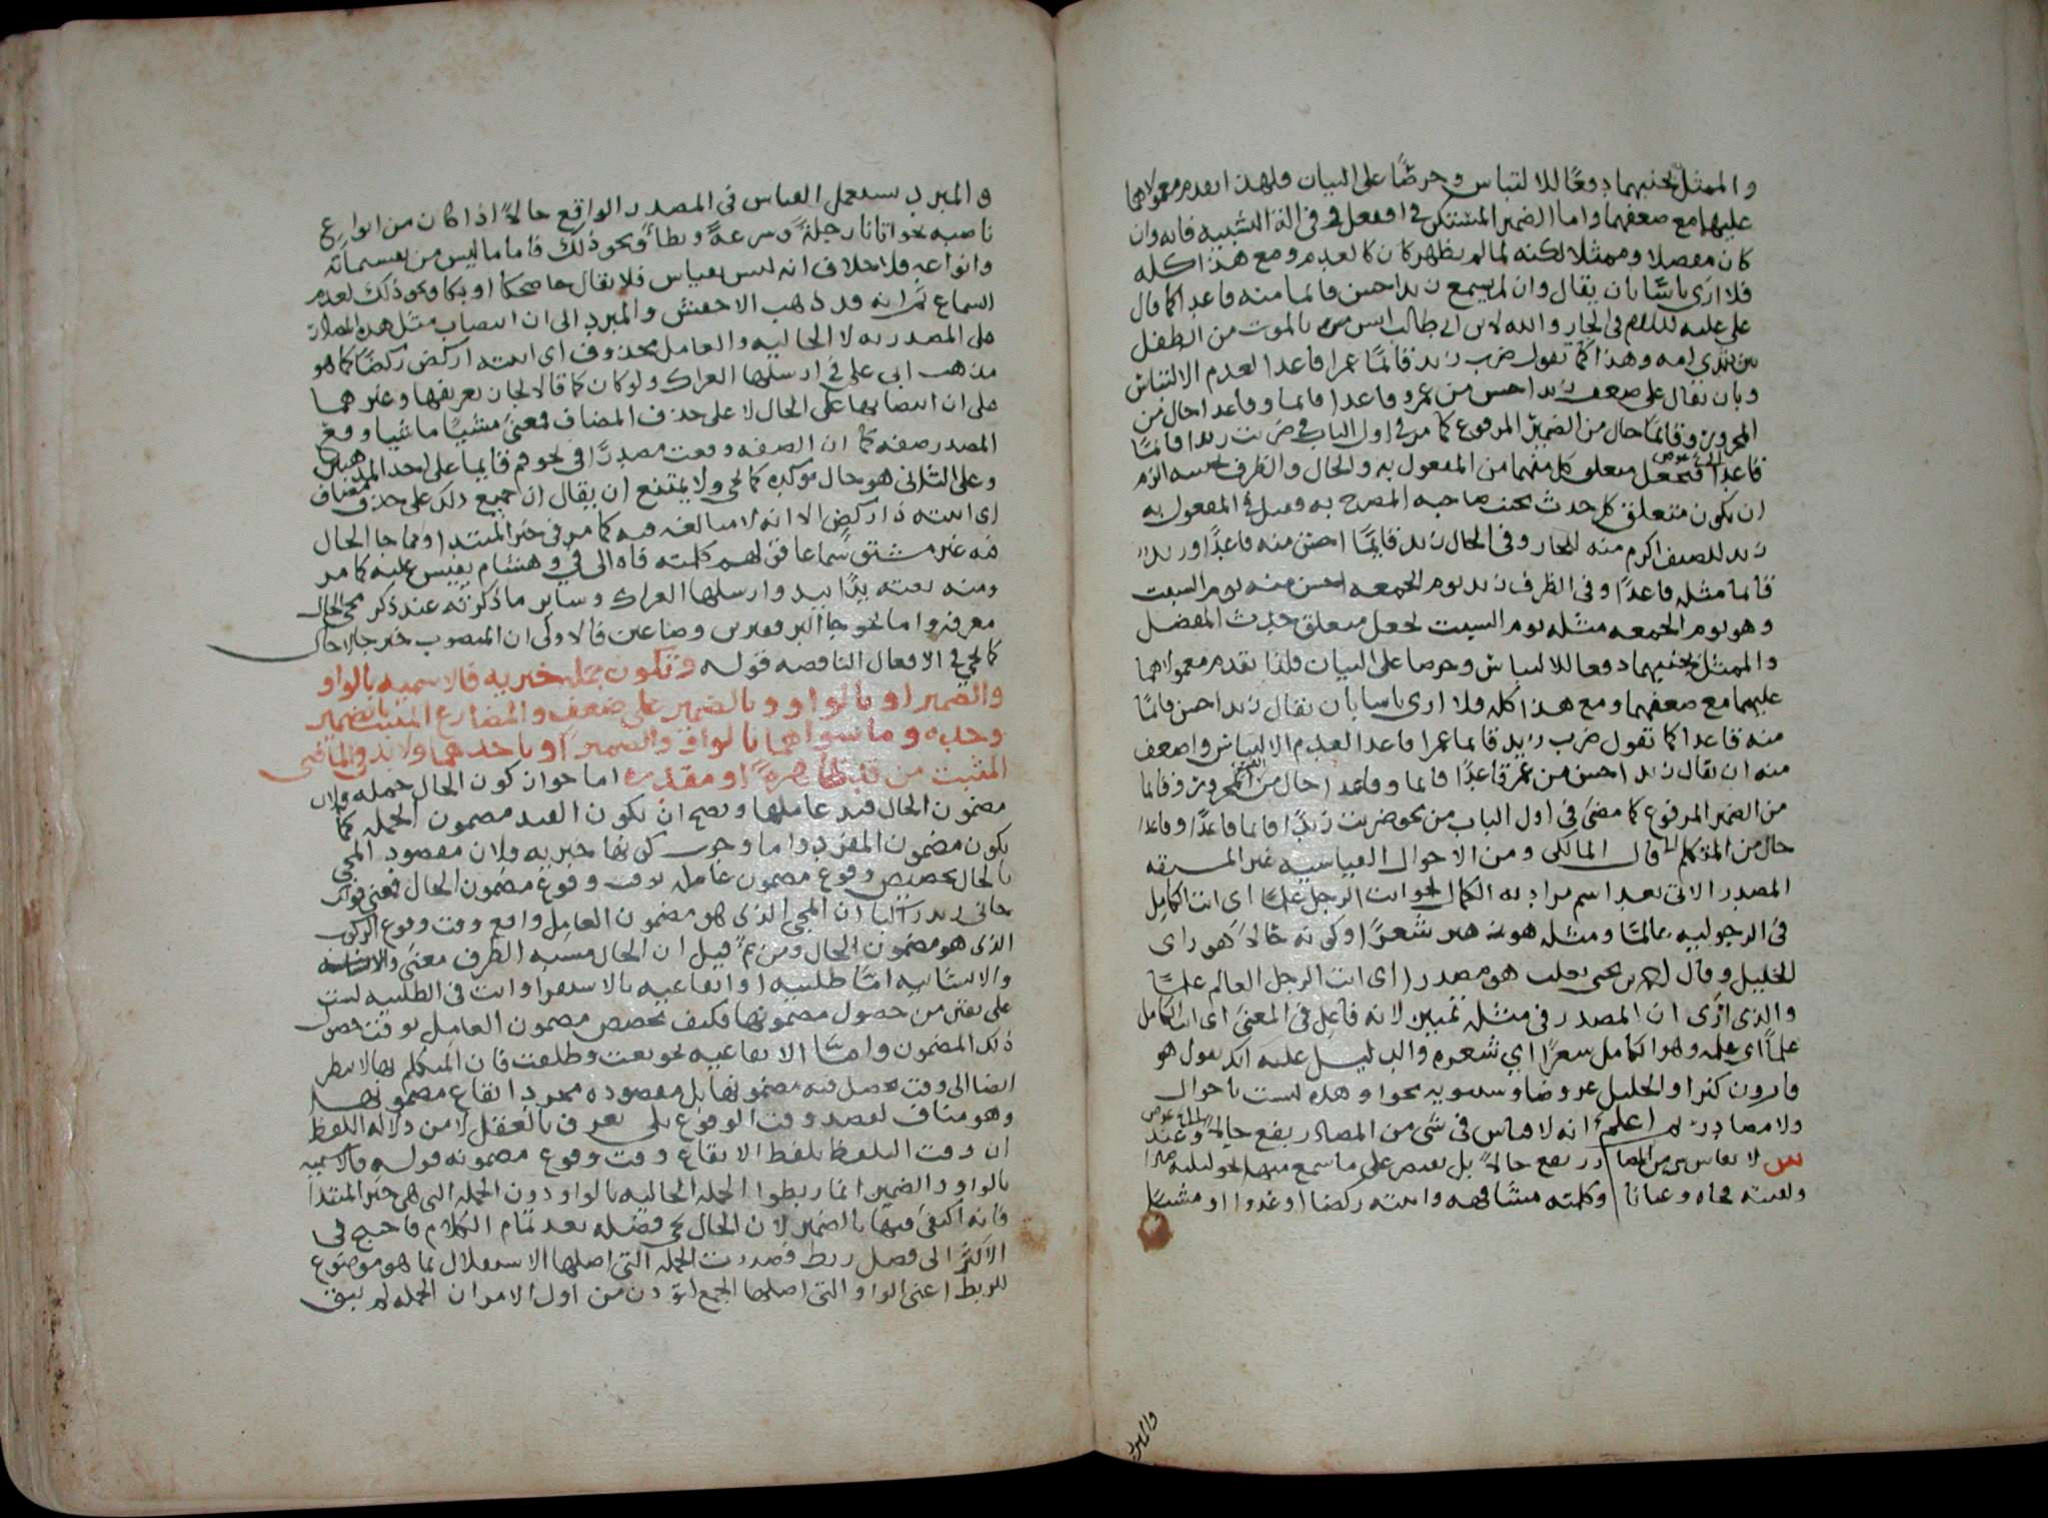 والممثل بجنبهما دفعا للالتباس وحرصا على البيان فلهذا تقدم معمولاهما
عليهما مع ضعفهما واما الضمير المستكن في افعل وفي الة التشبيه فانه وان
كان مفصلا وممثلا لكنه لما لم يظهر كان كالعدم ومع هذا كله
فلا ارى باسا بان يقال وان لم يسمع زيد احسن قائما منه قاعدا كما قال
على عليه السلام في الحار والله لابن ابي طالب انس بالموت من الطفل
بثدى امه وهذا كما تقول ضرب زيد قائما عمرا قاعدا لعدم الالتباس
وبان يقال على ضعف زيد احسن من عمرو قاعدا قائما وقاعدا حال من
المجرور وقائما حال من الضمير المرفوع كما مر في اول الباب في ضربت زيدا قائما
قاعدا فجعل متعلق كل منهما من المفعول به والحال والظرف بجنبه الزم
ان يكون متعلق كل حدث بجنب صاحبه المصرح به وقيل في المفعول به
زيد للضيف اكرم منه للجار وفي الحال زيد قائما احسن منه قاعدا وزيد
قائما مثله قاعدا وفي الظرف زيد يوم الجمعه احسن منه يوم السبت
وهو يوم الجمعه مثله يوم السبت لجعل متعلق حدث المفضل
والممثل بجنبهما دفعا للالتباس وحرصا على البيان فلذا تقدم معمولاهما
عليهما مع ضعفهما ومع هذا كله فلا ارى باسا بان يقال زيد احسن قائما
منه قاعدا كما تقول ضرب زيد قائما عمرا قاعدا لعدم الالتباس واضعف
منه ان يقال زيد احسن من عمرو قاعدا قائما وقاعدا حال من المجرور وقائما
من الضمير المرفوع كما مضى في اول الباب من نحو ضربت زيدا قائما قاعدا وقاعدا
حال من المتكلم قال المالكى ومن الاحوال القياسيه غير المشتقه
المصدر الاتى بعد اسم مراد به الكمال نحو انت الرجل علما اى انت الكامل
في الرجوليه عالما ومثله هو زهير شعرا وكونه حالا هو راى
الخليل وقال احمد بن يحيى ثعلب هو مصدر اى انت الرجل العالم علما
والذى ارى ان المصدر في مثله تمييز لانه فاعل في المعنى اى انت الكامل
علما اى علمه وهو الكامل شعرا اي شعره والدليل عليه انك تقول هو
قارون كنزا والخليل عروضا وسيبويه نحوا وهذه ليست باحوال
ولا مصادر ثم اعلم انه لا قياس في شى من المصادر يقع حالا وعند
س لا يقاس شى من المصادر يقع حالا بل يقتصر على ما سمع منها نحو قتلته صبرا
ولقيته فجاه وعيانا وكلمته مشافهه واتيته ركضا او عدوا او مشيا
والمبرد
والمبرد يستعمل القياس في المصدر الواقع حالا اذا كان من انواع
ناصبه نحو اتانا رجلة وسرعة وبطأ ونحو ذلك فاما ما ليس من تقسيماته
وانواعه فلا خلاف انه ليس بقياس فلا يقال جا ضحكا او بكا ونحو ذلك لعدم
السماع ثم انه قد ذهب الاخفش والمبرد الى ان انتصاب مثل هذه المصادر
على المصدريه لا الحاليه والعامل محذوف اى اتيته اركض ركضا كما هو
مذهب ابى على في ارسلها العراك ولو كان كما قالا لجاز تعريفها وعندهما
على ان انتصابها على الحال لا على حذف المضاف فمعنى مشيا ماشيا ووقع
المصدر صفه كما ان الصفه وقعت مصدرا في نحو قم قايما على احد المذهبين
وعلى الثانى هو حال موكده كما يجى ولا يمتنع ان يقال ان جميع ذلك على حذف المضاف
اى اتيته ذا ركض الا انه لا مبالغه فيه كما مر في خبر المبتدا ومما جا الحال
فيه غير مشتق سماعا قولهم كلمته فاه الى في وهشام يقيس عليه كما مر
ومنه بعته يدا بيد وارسلها العراك وساير ما ذكرته عند ذكر مجى الحال
معرفه واما نحو جا البر قفيزين وصاعين فالاولى ان المنصوب خبر جا لا حال
كما يجى في الافعال الناقصه قوله وتكون جمله خبريه فالاسميه بالواو
والضمير او بالواو وبالضمير على ضعف والمضارع المثبت بالضمير
وحده وما سواهما بالواو والضمير او باحدهما ولابد في الماضى
المثبت من قد ظاهرة او مقدره اما جواز كون الحال جمله فلان
مضمون الحال قيد عاملها ويصح ان يكون القيد مضمون الجمله كما
يكون مضمون المفرد واما وجوب كونها خبريه فلان مقصود المجى
بالحال تخصيص وقوع مضمون عامله بوقت وقوع مضمون الحال فمعنى قولك
جانى زيد راكبا ان المجى الذى هو مضمون العامل واقع وقت وقوع الركوب
الذى هو مضمون الحال ومن ثم قيل ان الحال مشبه الظرف معنى
والانشائيه اما طلبيه او ايقاعيه بالاستقرا وانت في الطلبيه لست
على يقين من حصول مضمونها فكيف تخصص مضمون العامل بوقت حصول
ذلك المضمون واما الايقاعيه نحو بعت وطلقت فان المتكلم بها لا ينظر
ايضا الى وقت يحصل فيه مضمونها بل مقصوده مجرد ايقاع مضمونها
وهو مناف لقصد وقت الوقوع بلى يعرف بالعقل لا من دلاله اللفظ
ان وقت التلفظ بلفظ الايقاع وقت وقوع مضمونه قوله فالاسميه
بالواو والضمير انما ربطوا الجمله الحاليه بالواو دون الجمله التى هى خبر المبتدا
فانه اكتفى فيها بالضمير لان الحال يجى فضله بعد تمام الكلام فاحتيج في
الاكثر الى فضل ربط فصدرت الجمله التى اصلها الاستقلال بما هو موضوع
للربط اعنى الواو التى اصلها الجمع لتوذن من اول الامر ان الجمله لم تبق